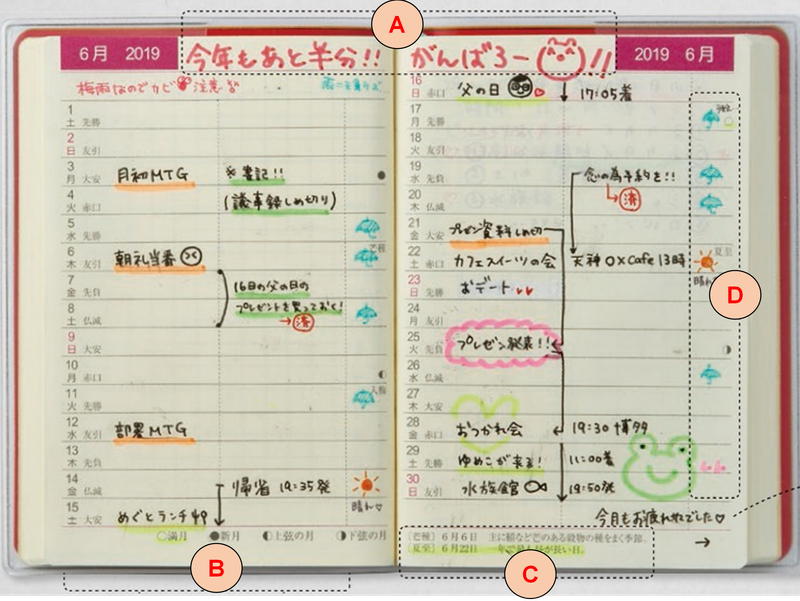 A
6月 2019
今年もあと半分!! がんばろー!!
2019 6月
梅雨なのでカビ注意
1
土 先勝
2
日 友引
3
月 大安 月初MTG ※書記!!
4
火 赤口 (議事録しめ切り)
5
水 先勝
6
木 友引 朝礼当番
芒種
7
金 先負 16日の父の日の
8
土 仏滅 プレゼントを買っておく!
→済
9
日 大安
10
月 赤口
11
火 先勝
入梅
12
水 友引 部署MTG
13
木 先負
14
金 仏滅 帰省 19:35発
晴れ
15
土 大安 めぐとランチ
○満月 ●新月 ◐上弦の月 ◑下弦の月
B
16
日 赤口 父の日 17:05着
17
月 先勝
18
火 友引
19
水 先負 念の為予約を!!
20
木 仏滅 済
21
金 大安 プレゼン資料しめ切
22
土 赤口 カフェスイーツの会 天神 OXCafe 13時
夏至
23
日 先勝 おデート
晴れ
D
24
月 友引
25
火 先負 プレゼン発表!!
26
水 仏滅
27
木 大安
28
金 赤口 おつかれ会 19:30 博多
29
土 先勝 ゆめこが来る! 11:00着
30
日 友引 水族館 19:50発
今月もお疲れさまでした♡
→
[芒種] 6月6日 主に稲など芒のある穀物の種をまく季節。
[夏至] 6月22日 一年で最も昼が長い日。
C